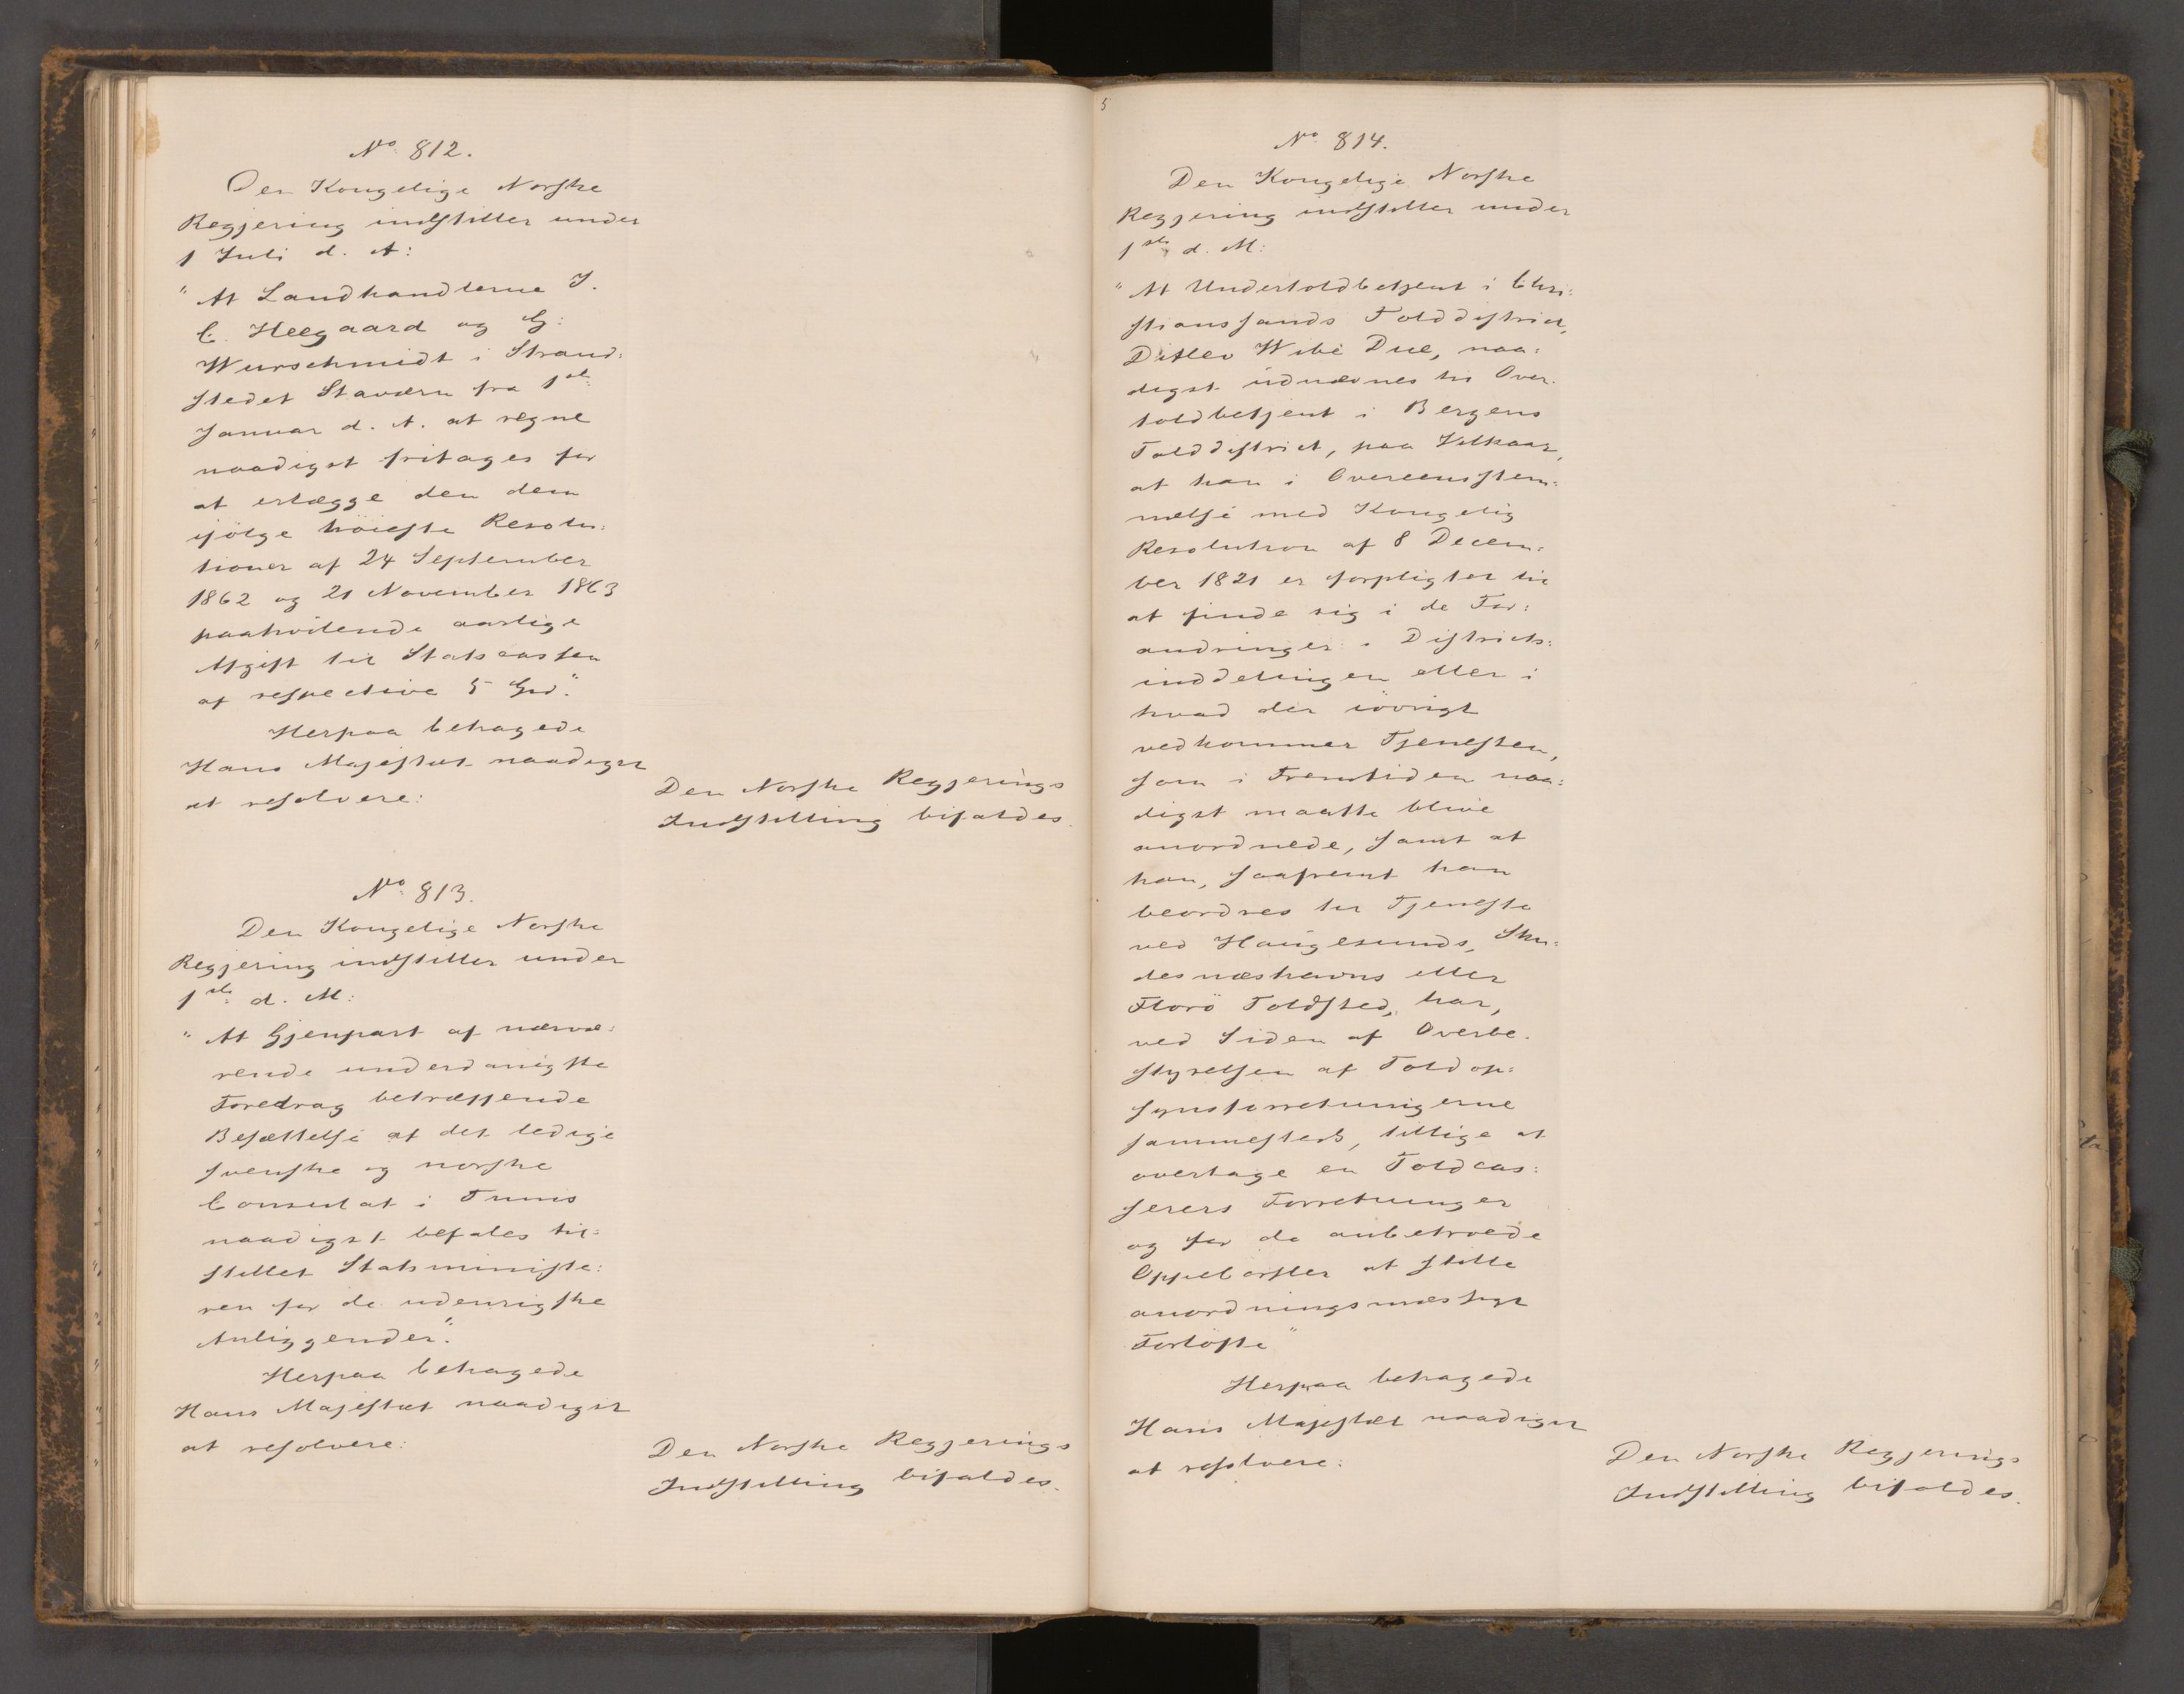 No 812.
Den Kongelige Norske
Regjering indstiller under
1 Juli d. A:
"At Landhandlerne J.
C. Heegaard og G:
Wurschmidt i Strand:
stedet Staværn fra 1ste
Januar d. A. at regne
naadigst fritages for
at erlægge den dem
ifølge høieste Resolu:
tioner af 24 September
1862 og 21 November 1863
paahvilende aarlige
Afgift til Statscassen
af respective 5 Spd."
Herpaa behagede
Hans Majestæt naadigst
at resolvere:
Den Norske Regjerings
Indstilling bifaldes.
No 813.
Den Kongelige Norske
Regjering indstiller under
1ste d. M:
"At Gjenpart af nærvæ:
rende underdanigste
Foredrag betræffende
Besættelse af det ledige
svenske og norske
Consulat i Tunis
naadigst befales til:
stillet Statsministe:
ren for de udenrigske
Anliggender."
Herpaa behagede
Hans Majestæt naadigst
at resolvere:
Den Norske Regjerings
Indstilling bifaldes.
5
No 814.
Den Kongelige Norske
Regjering indstiller under
1ste d. M:
"At Undertoldbetjent i Chri:
stianssands Tolddistrict,
Ditlev Wibe Due, naa:
digst udnævnes til Over:
toldbetjent i Bergens
Tolddistrict, paa Vilkaar,
at han i Overeensstem:
melse med Kongelig
Resolution af 8 Decem:
ber 1821 er forpligtet til
at finde sig i de For:
andringer i Districts:
inddelingen eller i
hvad der iøvrigt
vedkommer Tjenesten,
som i Fremtiden naa:
digst maatte blive
anordnede, samt at
han, saafremt han
beordres til Tjeneste
ved Haugesunds, Sku:
desnæshavns eller
Florö Toldsted, har,
ved Siden af Overbe:
styrelsen af Toldop:
synsforretningerne
sammesteds, tillige at
overtage en Toldcas:
serers Forretninger
og for de anbetroede
Oppebørsler at stille
anordningsmæssigt
Forløfte"
Herpaa behagede
Hans Majestæt naadigst
at resolvere:
Den Norske Regjerings
Indstilling bifaldes.